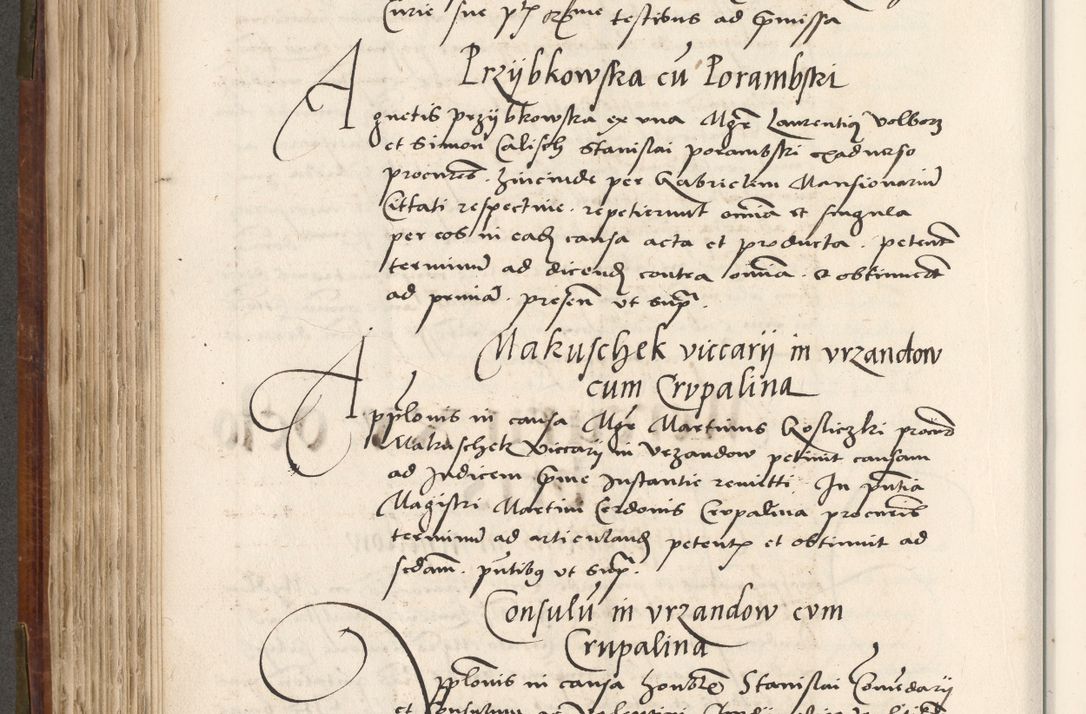 Curie sue testibus ad pmissa
Przÿbkowska cū Porambski
Agnetis przÿbkowska ex vna Mgr Laurentius Volborz
et Simon Calisch Stanislai porambski exaduerso
procures. hincinde per Gabrielem Mansionariū
Cittati respectiue. repetierunt omīa et singula
per eos in ead causa acta et producta. petent
terminū ad dicend contra omīa. & obtinuert
ad primā. presen vt supª.
Makuschek viccarij in vrzandow
cum Crvpalina
Applonis in causa Mgr Martinus Gosliczki procurō
Makuschek Viccarij in Vrzandow petiuit causam
ad Judicem pme Instantie remitti. In pntia
Magistri Martini Cerdonis Crvpalina procuris
terminū ad articuland petent et obtinuit ad
sedam. pntibus vt supª.
Consulū in vrzandow cvm
Crupalina
Applonis in causa honor Stanislai
et